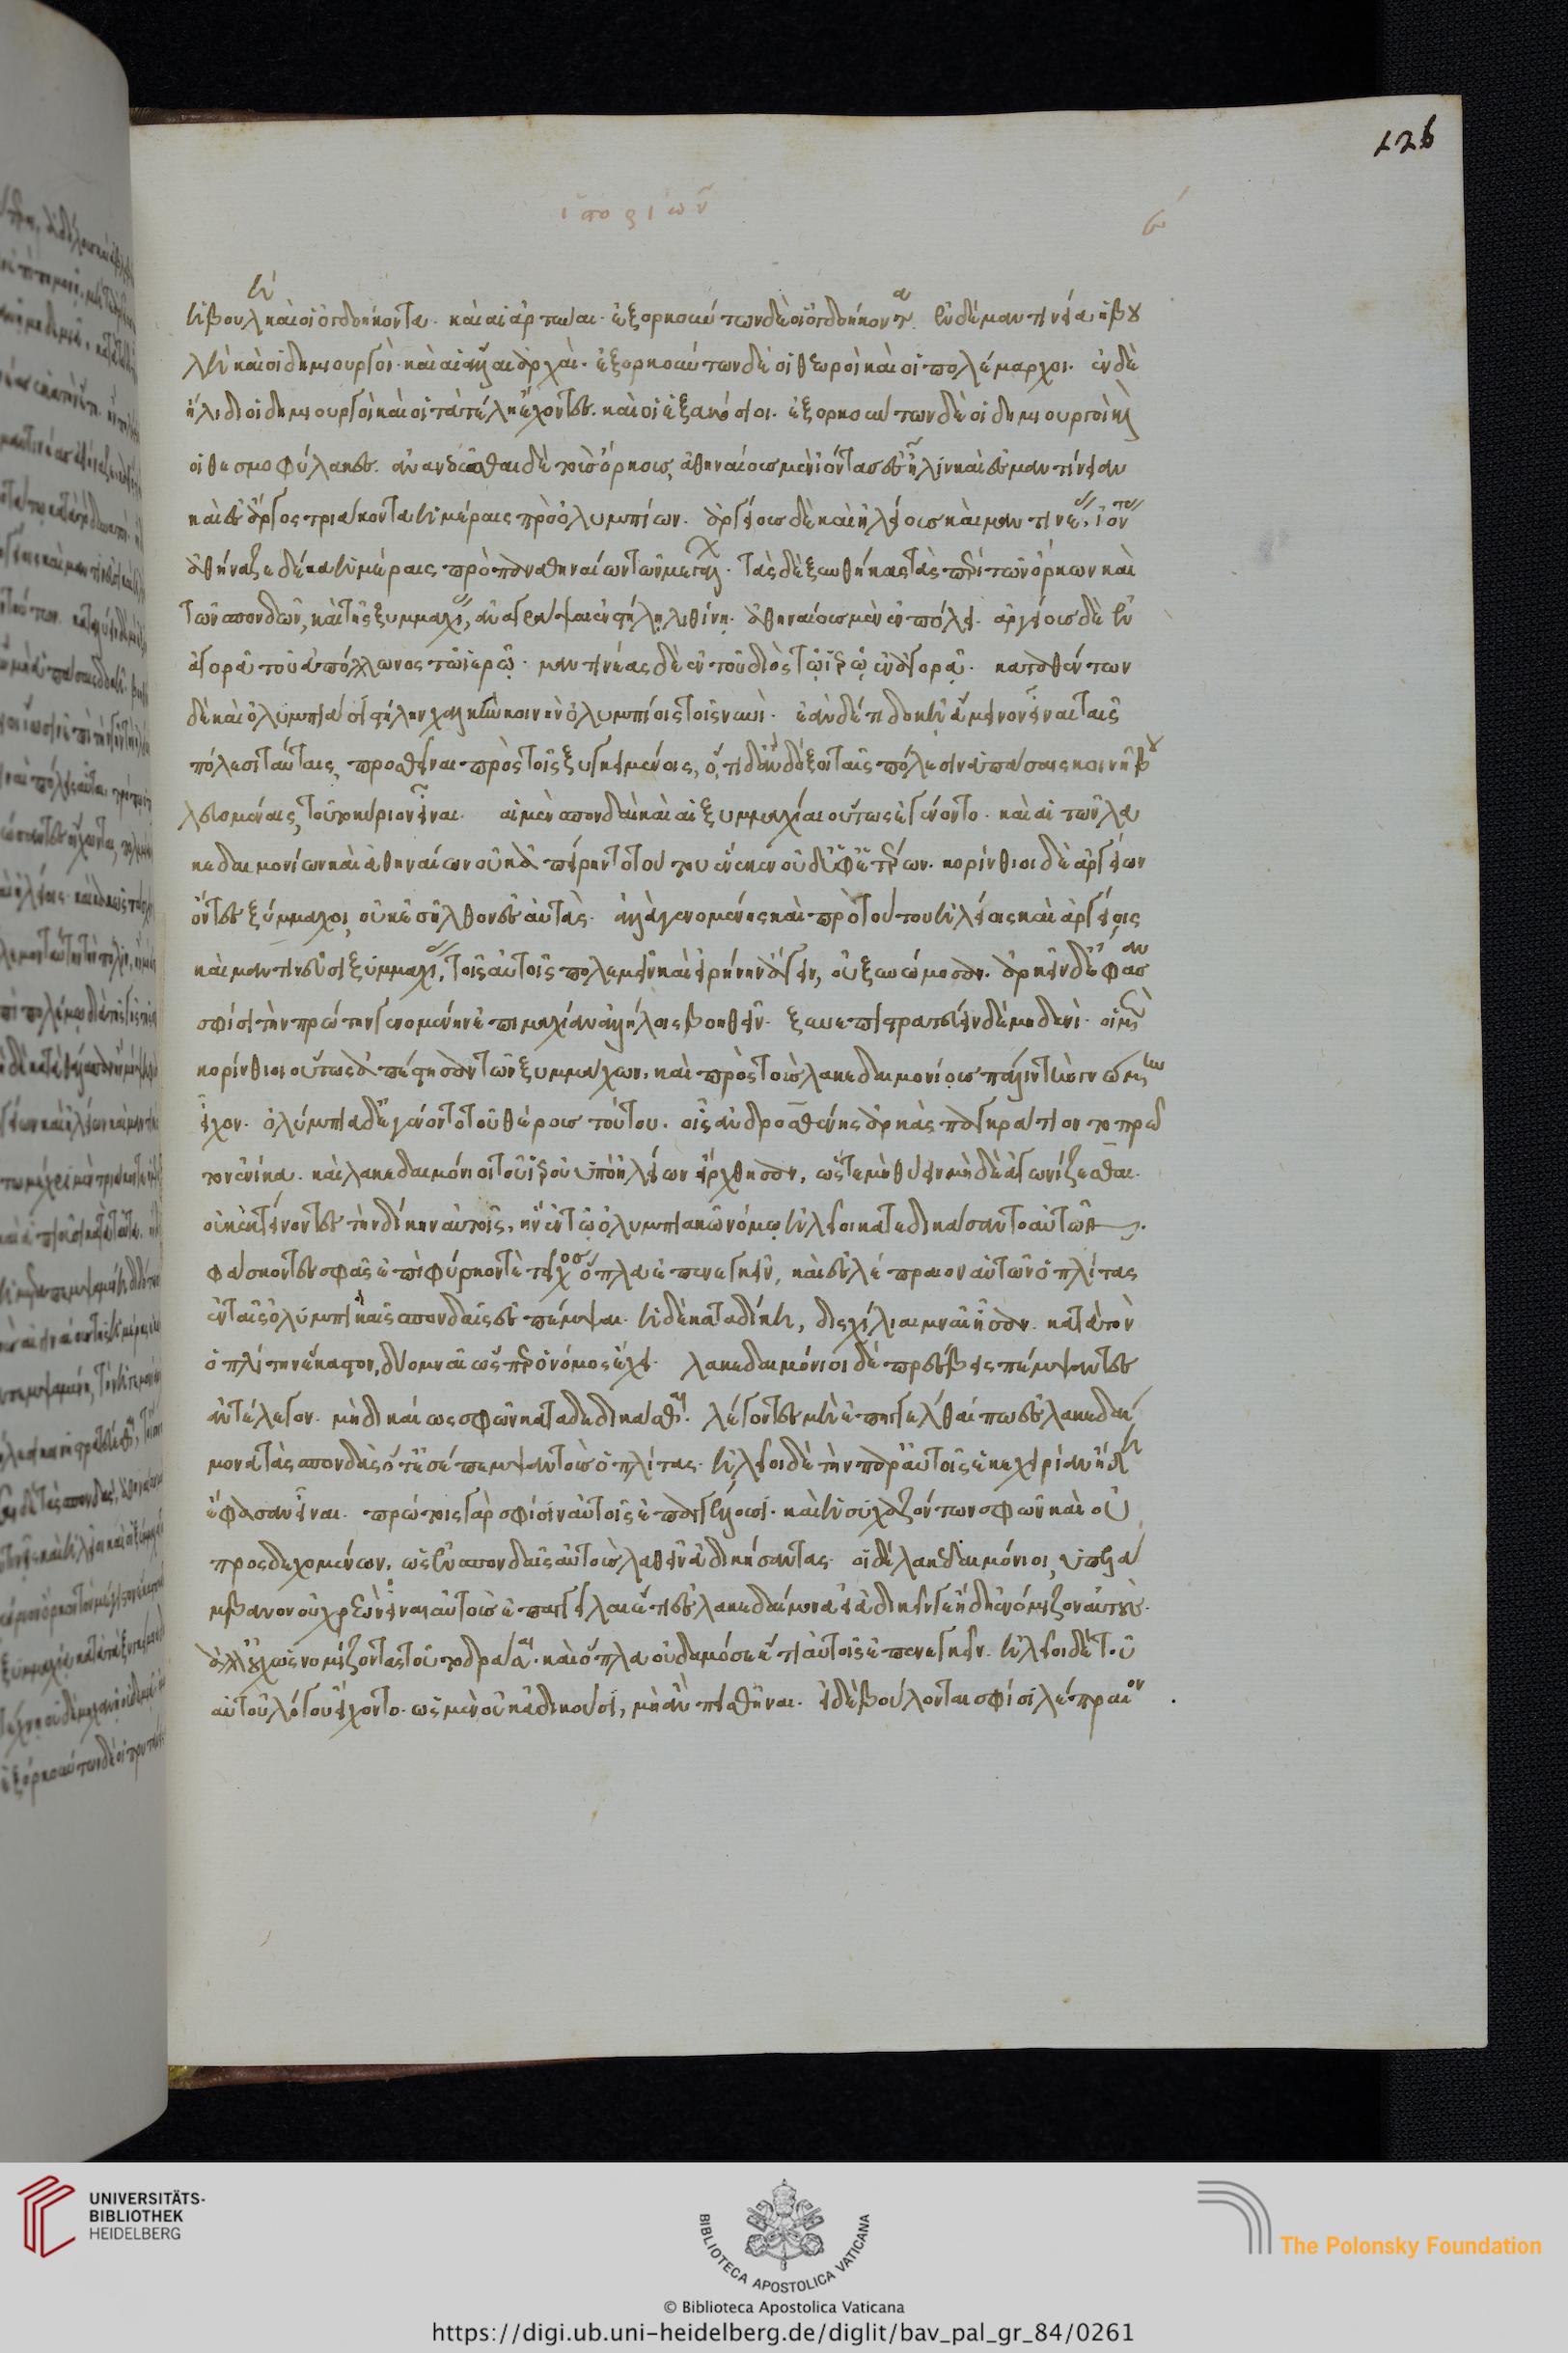 ἱστοριῶν ε´
126
ἡ βουλὴ καὶ οἱ ὀγδοήκοντα. καὶ αἱ ἀρτῦναι. ἐξορκούντων δὲ οἱ ὀγδοήκοντα. ἐν δὲ μαντινέα ἡ βου
λὴ καὶ οἱ δημιουργοὶ. καὶ αἱ ἄλλαι ἀρχαὶ. ἐξορκούντων δὲ οἱ θεωροὶ καὶ οἱ πολέμαρχοι. ἐν δὲ
ἤλιδι οἱ δημιουργοὶ καὶ οἱ τὰ τέλη ἔχοντες. καὶ οἱ ἑξακόσιοι. ἐξορκούντων δὲ οἱ δημιουργοὶ καὶ
οἱ θεσμοφύλακες. ἀνανεοῦσθαι δὲ τοὺς ὅρκους, ἀθηναίους μὲν ἰόντας ἐς ἦλιν καὶ ἐς μαντίνειαν
καὶ ἐς ἄργος τριάκοντα ἡμέραις πρὸ ὀλυμπίων. ἀργείους δὲ καὶ ἠλείους καὶ μαντινέας ἰόντας
ἀθήναζε δέκα ἡμέραις πρὸ παναθηναίων τῶν μεγάλων. τὰς δὲ ξυνθήκας τὰς περὶ τῶν ὅρκων καὶ
τῶν σπονδῶν, καὶ τῆς ξυμμαχίας, ἀναγράψαι ἐν στήλῃ λιθίνῃ. ἀθηναίους μὲν ἐν πόλει. ἀργείους δὲ ἐν
ἀγορᾷ τοῦ ἀπόλλωνος τῷ ἱερῷ. μαντινέας δὲ ἐν τοῦ διὸς τῷ ἱερῷ ἐν ἀγορᾷ. καταθέντων
δὲ καὶ ὀλυμπίασι στήλην χαλκῆν κοινῇ ὀλυμπίοις τοῖς νυνί. ἐὰν δέ τι δοκῇ ἄμεινον εἶναι ταῖς
πόλεσι ταύταις, προσθεῖναι πρὸς τοῖς ξυγκειμένοις, ὅ, τι δ' ἂν δόξῃ ταῖς πόλεσιν ἁπάσαις κοινῇ β
ουλευομέναις, τοῦτο κύριον εἶναι. αἱ μὲν σπονδαὶ καὶ αἱ ξυμμαχίαι οὕτως ἐγένοντο. καὶ αἱ τῶν λα
κεδαιμονίων καὶ ἀθηναίων οὐκ ἀπείρηντο τούτου ἕνεκεν οὐδ' ὑφ' ἑτέρων. κορίνθιοι δὲ ἀργείων
ὄντες ξύμμαχοι, οὐκ ἐσῆλθον ἐς αὐτὰς. ἀλλὰ γενομένης καὶ πρὸ τούτου ἠλείοις καὶ ἀργείοις
καὶ μαντινεῦσι ξυμμαχίας, τοῖς αὐτοῖς πολεμεῖν καὶ εἰρήνην ἄγειν, οὐ ξυνώμοσαν. ἀρκεῖν δ' ἔφασαν
σφίσι τὴν πρώτην γενομένην ἐπιμαχίαν ἀλλήλοις βοηθεῖν. ξυνεπιστρατεύειν δὲ μηδενὶ. οἱ μὲν
κορίνθιοι οὕτως ἀπέστησαν τῶν ξυμμάχων. καὶ πρὸς τοὺς λακεδαιμονίους πάλιν τὴν γνώμην
εἶχον. ὀλύμπια δ' ἐγένοντο τοῦ θέρους τούτου. οἷς ἀνδροσθένης ἀρκὰς παγκράτιον τὸ πρῶ
τον ἐνίκα. καὶ λακεδαιμόνιοι τοῦ ἱεροῦ ὑπὸ ἠλείων εἴρχθησαν, ὥστε μὴ θύειν μηδὲ ἀγωνίζεσθαι.
οὐκ ἐκτίνοντες τὴν δίκην αὐτοῖς, ἣν ἐν τῷ ὀλυμπιακῷ νόμῳ ἠλεῖοι κατεδικάσαντο αὐτῶν.
φάσκοντες σφᾶς ἐπὶ φύρκον τε τεῖχος ὅπλα ἐπενεγκεῖν, καὶ ἐς λέπρεον αὐτῶν ὁπλίτας
ἐν ταῖς ὀλυμπικαῖς σπονδαῖς ἐσπέμψαι. ἡ δὲ καταδίκη, δισχίλιαι μναῖ ἦσαν. κατὰ τὸν
ὁπλίτην ἕκαστον, δύο μναῖ ὥσπερ ὁ νόμος ἔχει. λακεδαιμόνιοι δὲ πρέσβεις πέμψαντες
ἀντέλεγον. μὴ δικαίως σφῶν καταδεδικάσθαι. λέγοντες μὴ ἐπηγγέλθαί πω ἐς λακεδαί
μονα τὰς σπονδὰς, ὅτ' ἐσέπεμψαν τοὺς ὁπλίτας. ἠλεῖοι δὲ τὴν παρ' αὐτοῖς ἐκεχειρίαν ἤδη
ἔφασαν εἶναι. πρώτοις γὰρ σφίσιν αὐτοῖς ἐπαγγέλλουσι. καὶ ἡσυχαζόντων σφῶν καὶ οὐ
προσδεχομένων, ὡς ἐν σπονδαῖς αὐτοὺς λαθεῖν ἀδικήσαντας. οἱ δὲ λακεδαιμόνιοι, ὑπελά
μβανον οὐ χρεὼν εἶναι αὐτοὺς ἐπαγγεῖλαι ἔτι ἐς λακεδαίμονα εἰ ἀδικεῖν γε ἤδη ἐνόμιζον αὐτούς.
ἀλλ' οὐχ ὡς νομίζοντας τοῦτο δρᾶσαι. καὶ ὅπλα οὐδαμόσε ἔτι αὐτοῖς ἐπενεγκεῖν. ἠλεῖοι δὲ τοῦ
αὐτοῦ λόγου εἴχοντο. ὡς μὲν οὐκ ἀδικοῦσι, μὴ ἂν πεισθῆναι. εἰ δὲ βούλονται σφίσι λέπρεον
UNIVERSITÄTS-
BIBLIOTHEK
HEIDELBERG
BIBLIOTECA APOSTOLICA VATICANA
The Polonsky Foundation
© Biblioteca Apostolica Vaticana
https://digi.ub.uni-heidelberg.de/diglit/bav_pal_gr_84/0261